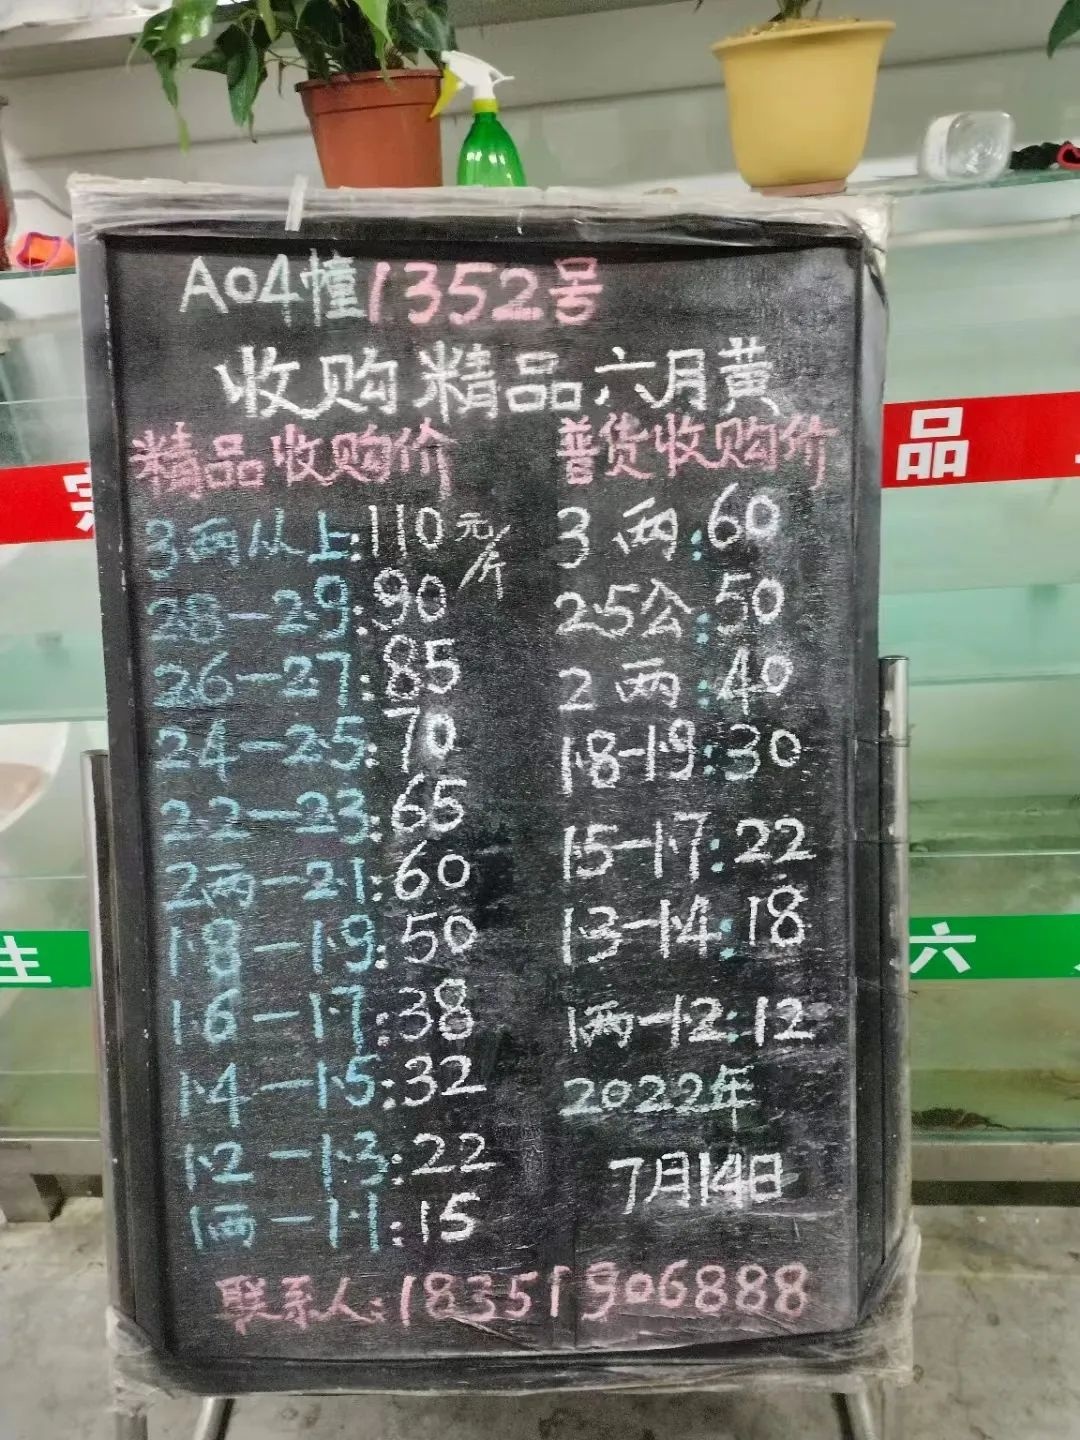 A04幢1352号
收购精品六月黄
精品收购价
3两从上:110元/斤
2.8-2.9:90
2.6-2.7:85
2.4-2.5:70
2.2-2.3:65
2两-2.1:60
1.8-1.9:50
1.6-1.7:38
1.4-1.5:32
1.2-1.3:22
1两-1.1:15
普货收购价
3两:60
2.5公:50
2两:40
1.8-1.9:30
1.5-1.7:22
1.3-1.4:18
1两-1.2:12
2022年
7月14日
联系人:18351906888
品
生
六